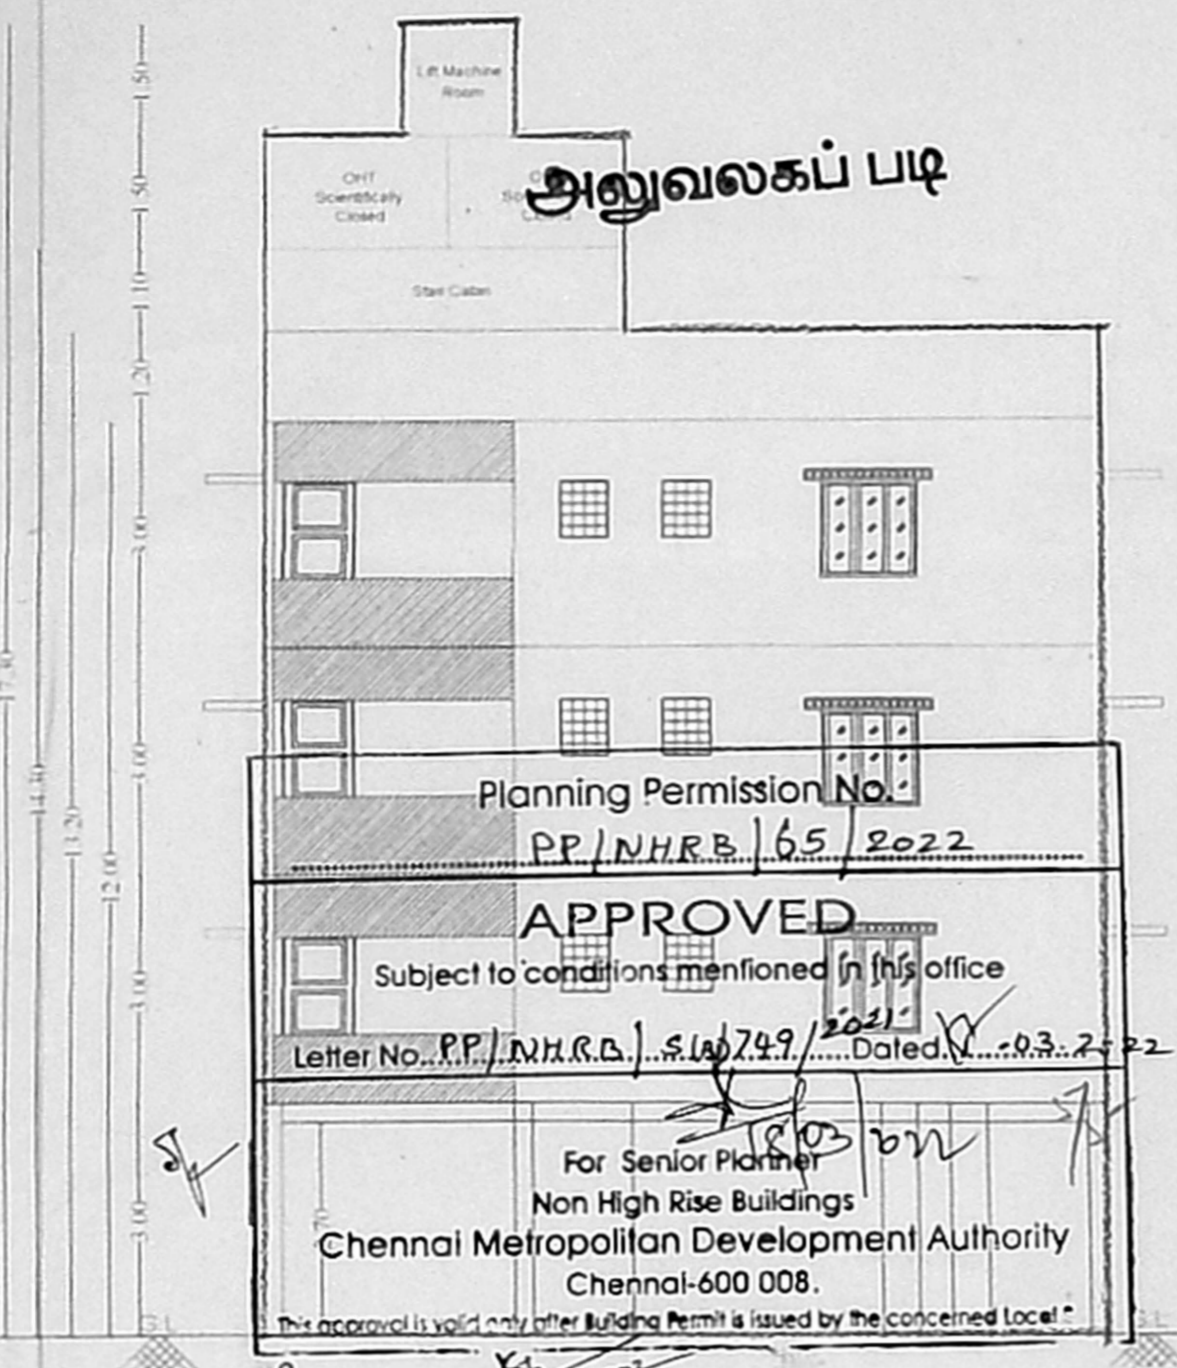 1.50
Lift Machine
Room
அலுவலகப் படி
OHT
Scientifically
Closed
1.50
1.10
Stair Cabin
1.20
3.00
17.30
14.30
13.20
12.00
3.00
Planning Permission No.
PP/NHRB/65/2022
APPROVED
Subject to conditions mentioned in this office
3.00
Letter No. PP/NHRB/S(B)749/2021 Dated -03-2022
18/03/2022
For Senior Planner
Non High Rise Buildings
3.00
Chennai Metropolitan Development Authority
Chennai-600 008.
This approval is valid only after Building Permit is issued by the concerned Local
G.L